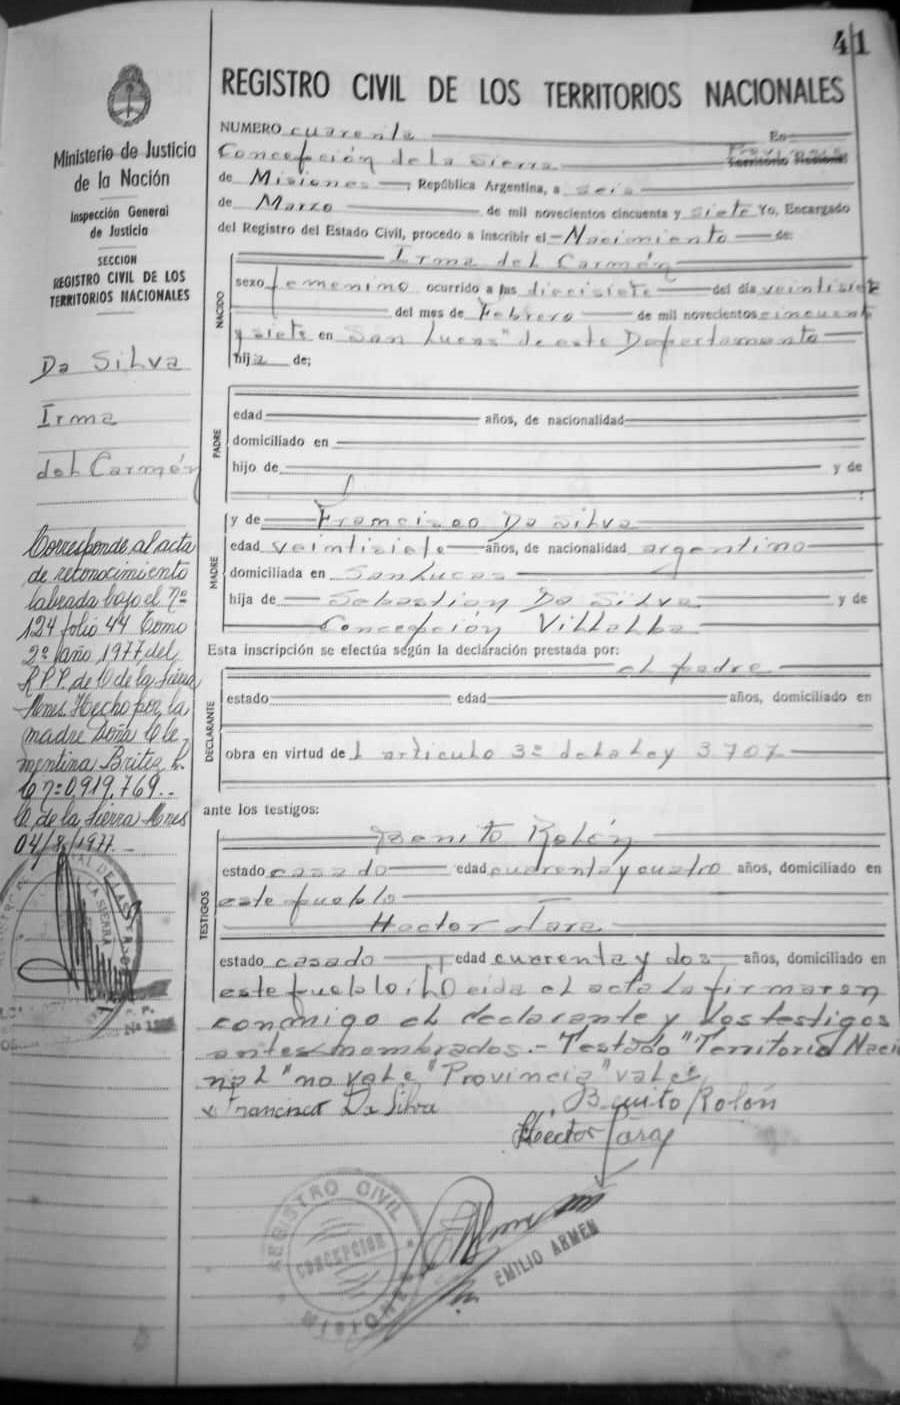 41
REGISTRO CIVIL DE LOS TERRITORIOS NACIONALES
Ministerio de Justicia
de la Nación
Inspección General
de Justicia
SECCION
REGISTRO CIVIL DE LOS
TERRITORIOS NACIONALES
Da Silva
Irma
del Carmén
Corresponde al acta
de reconocimiento
labrada bajo el Nº
124 folio 44 Tomo
2º año 1977 del
R.P.P. de C. de la Sierra
Mnes. Hecho por la
madre Doña Cle
mentina Britez
Nº 0.919.769.-
C. de la Sierra Mnes
04/8/1977.-
NUMERO cuarenta En
Concepción de la Sierra Provincia Territorio Nacional
de Misiones, República Argentina, a seis
de Marzo de mil novecientos cincuenta y siete Yo, Encargado
del Registro del Estado Civil, procedo a inscribir el Nacimiento de:
NACIDO
Irma del Carmén
sexo femenino ocurrido a las diecisiete del día veintisiete
del mes de Febrero de mil novecientos cincuenta
y siete en San Lucas" de este Departamento
hija de;
PADRE
edad años, de nacionalidad
domiciliado en
hijo de y de
MADRE
y de Francisco Da Silva
edad veintisiete años, de nacionalidad argentino
domiciliada en San Lucas
hija de Sebastian Da Silva y de
Concepción Villalba
Esta inscripción se efectúa según la declaración prestada por:
DECLARANTE
el padre
estado edad años, domiciliado en
obra en virtud del articulo 3º de la Ley 3.707
ante los testigos:
TESTIGOS
Benito Rolón
estado casado edad cuarenta y cuatro años, domiciliado en
este pueblo
Hector Jara
estado casado edad cuarenta y dos años, domiciliado en
este pueblo. Leida el acta la firmaron
conmigo el declarante y los testigos
antes nombrados.- Testado "Territorio Nacio
nal" no vale "Provincia" vale
x Francisco Da Silva
Benito Rolón
Hector Jara
REGISTRO CIVIL
CONCEPCION
EMILIO ARMEN